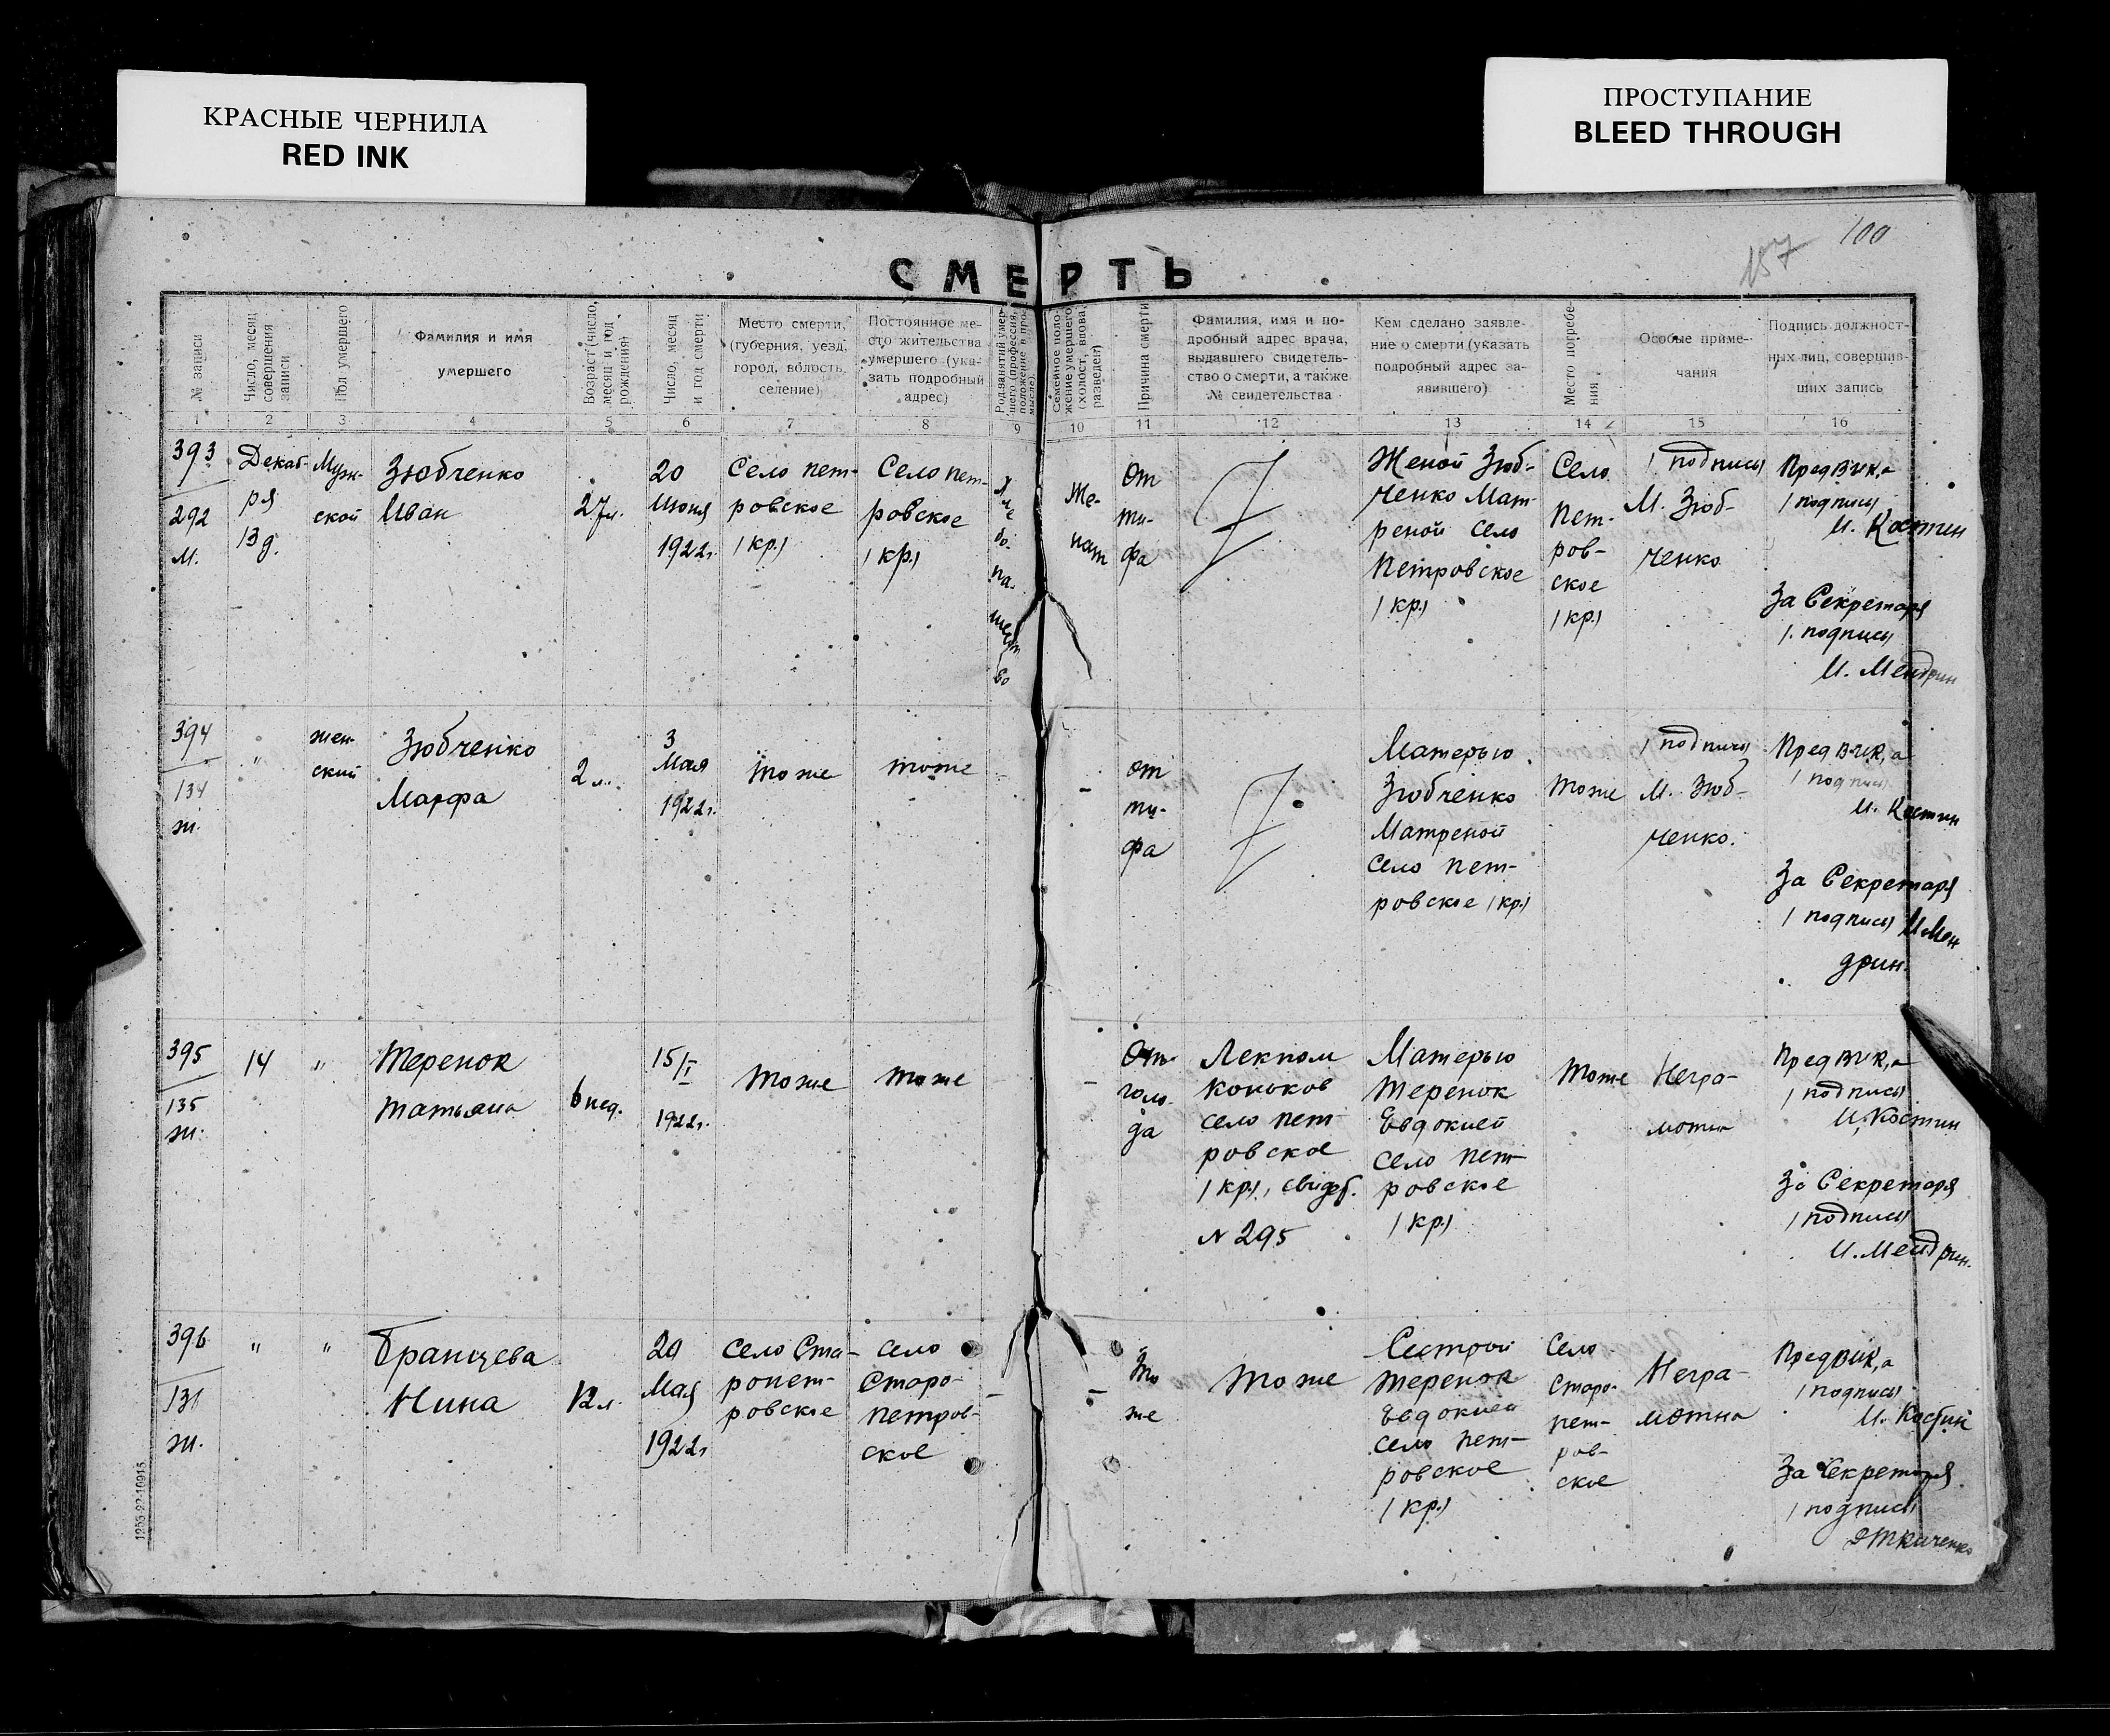 КРАСНЫЕ ЧЕРНИЛА
RED INK
ПРОСТУПАНИЕ
BLEED THROUGH
100
157
СМЕРТЬ
№ записи
Число, месяц
совершения
записи
Пол умершего
Фамилия и имя
умершего
Возраст (число,
месяц и год
рождения)
Число, месяц
и год смерти
Место смерти,
(губерния, уезд,
город, волость,
селение)
Постоянное ме-
сто жительства
умершего (ука-
зать подробный
адрес)
Род занятий умер-
шего (профессия,
положение в про-
мысле).
Семейное поло-
жение умершего
(холост, вдова,
разведен)
Причина смерти
Фамилия, имя и по-
дробный адрес врача,
выдавшего свидетель-
ство о смерти, а также
№ свидетельства
Кем сделано заявле-
ние о смерти (указать
подробный адрес за-
явившего)
Место погребе-
ния
Особые приме-
чания
Подпись должност-
ных лиц, совершив-
ших запись
1 2 3 4 5 6 7 8 9 10 11 12 13 14 15 16
393
292
м.
Декаб-
ря
13 д.
Муж-
ской
Зюбченко
Иван
27 л.
20
Июня
1922 г.
Село Пет-
ровское
/кр./
Село Пет-
ровское
/кр./
Же-
нат
От
ти-
фа
Женой Зюб-
ченко Мат-
реной село
Петровское
/кр./
Село
Пет-
ров-
ское
/кр./
/подпись/
М. Зюб-
ченко
Пред ВИК,а
/подпись/
И. Костин
За Секретаря
/подпись/
И. Мендрин
394
134
ж.
"
жен-
ский
Зюбченко
Марфа
2 л.
3
Мая
1922 г.
тоже
тоже
-
от
ти-
фа
Матерью
Зюбченко
Матреной
село Пет-
ровское /кр./
тоже
/подпись/
М. Зюб-
ченко.
Пред ВИК,а
/подпись/
И. Костин
За Секретаря
/подпись/ И. Мен
дрин.
395
135
ж.
14
"
Теренок
Татьяна
6 нед.
15/I
1922 г.
тоже
тоже
-
От
голо-
да
Лекпом
Коньков
село Пет
ровское
/кр./, свидет.
№ 295
Матерью
Теренок
Евдокией
село Пет-
ровское
/кр./
тоже
Негра-
мотна
Пред ВИК,а
/подпись/
И. Костин
За Секретаря
/подпись/
И. Мендрин.
396
ж.
"
"
Нина
12 л.
20
Мая
1922 г.
село Ста-
ропет-
ровское
село
Старо-
петров-
ское
-
то
же
тоже
Сестрой
Теренок
Евдокией
село Пет-
ровское
/кр./
Село
Старо-
пет-
ров-
ское
Негра-
мотна
Пред ВИК,а
/подпись/
И. Костин
За Секретаря
/подпись/
Ткаченко